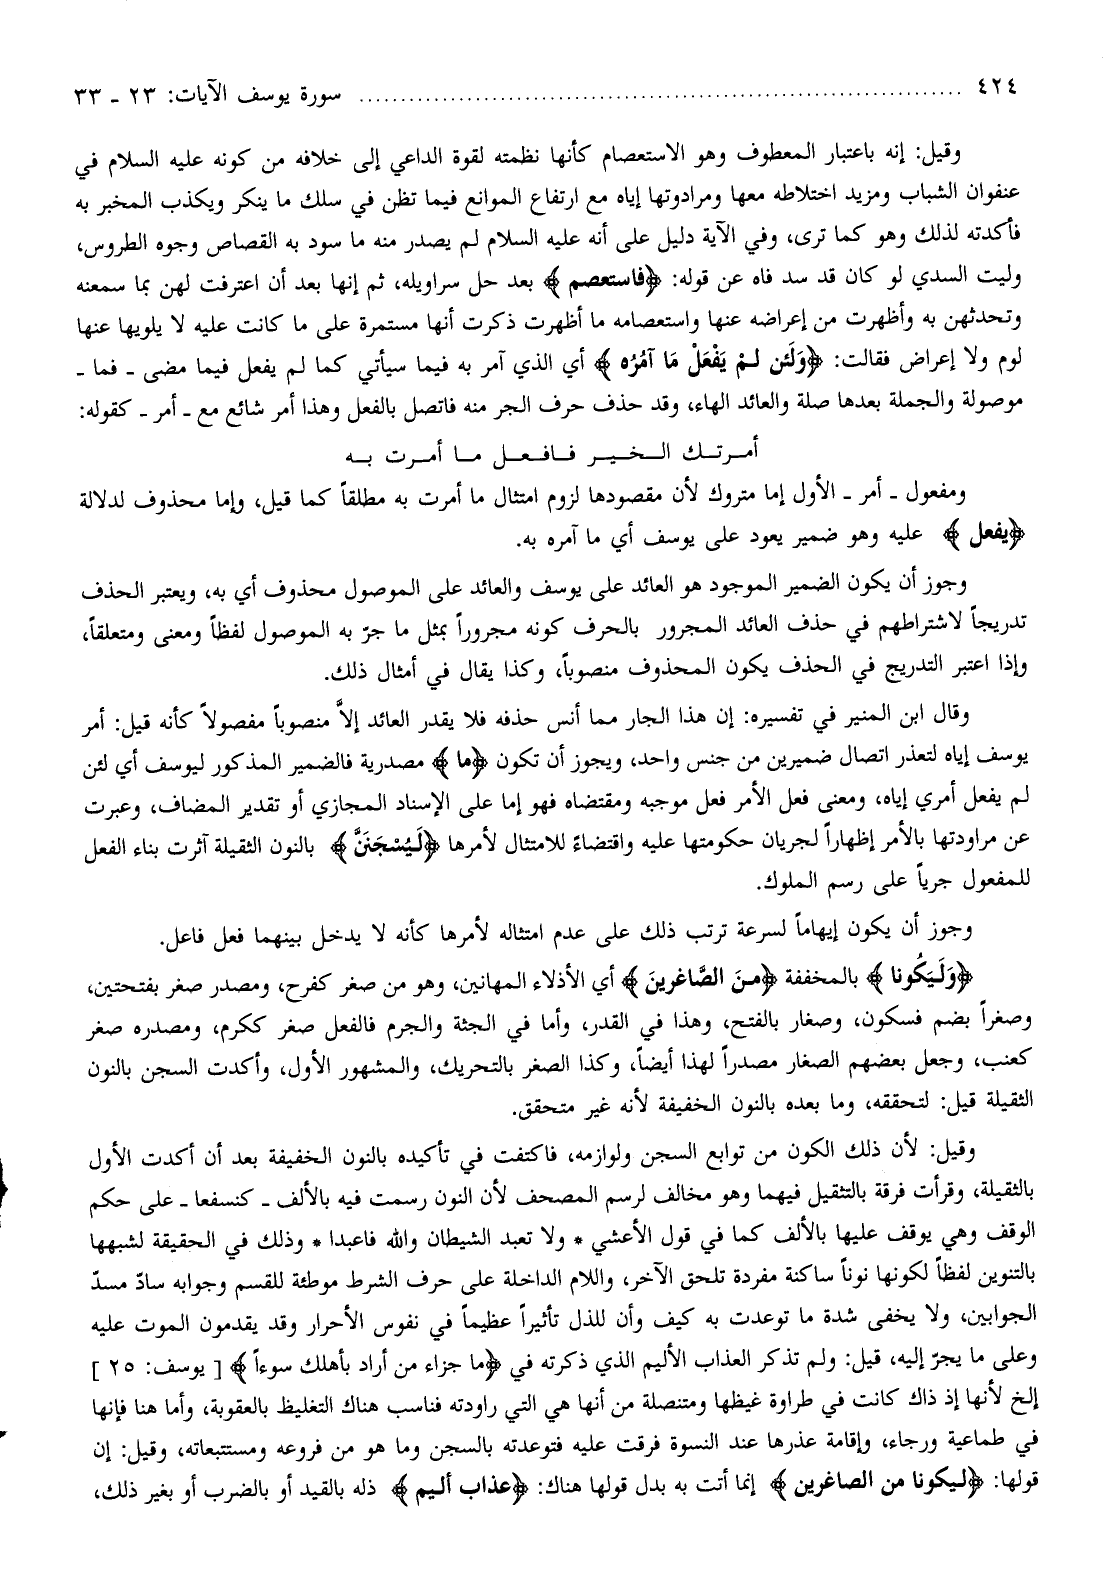 ٤٢٤ .......................................................................... سورة يوسف الآيات: ٢٣ ـ ٣٣
وقيل: إنه باعتبار المعطوف وهو الاستعصام كأنها نظمته لقوة الداعي إلى خلافه من كونه عليه السلام في
عنفوان الشباب ومزيد اختلاطه معها ومرادوتها إياه مع ارتفاع الموانع فيما تظن في سلك ما ينكر ويكذب المخبر به
فأكدته لذلك وهو كما ترى، وفي الآية دليل على أنه عليه السلام لم يصدر منه ما سود به القصاص وجوه الطروس،
وليت السدي لو كان قد سد فاه عن قوله: ﴿فاستعصم﴾ بعد حل سراويله، ثم إنها بعد أن اعترفت لهن بما سمعنه
وتحدثهن به وأظهرت من إعراضه عنها واستعصامه ما أظهرت ذكرت أنها مستمرة على ما كانت عليه لا يلويها عنها
لوم ولا إعراض فقالت: ﴿وَلَئن لمْ يَفْعَلْ مَا آمُرُه﴾ أي الذي آمر به فيما سيأتي كما لم يفعل فيما مضى ـ فما ـ
موصولة والجملة بعدها صلة والعائد الهاء، وقد حذف حرف الجر منه فاتصل بالفعل وهذا أمر شائع مع ـ أمر ـ كقوله:
أمرتك الخير فافعل ما أمرت به
ومفعول ـ أمر ـ الأول إما متروك لأن مقصودها لزوم امتثال ما أمرت به مطلقاً كما قيل، وإما محذوف لدلالة
﴿يفعل﴾ عليه وهو ضمير يعود على يوسف أي ما آمره به.
وجوز أن يكون الضمير الموجود هو العائد على يوسف والعائد على الموصول محذوف أي به، ويعتبر الحذف
تدريجاً لاشتراطهم في حذف العائد المجرور بالحرف كونه مجروراً بمثل ما جرّ به الموصول لفظاً ومعنى ومتعلقاً،
وإذا اعتبر التدريج في الحذف يكون المحذوف منصوباً، وكذا يقال في أمثال ذلك.
وقال ابن المنير في تفسيره: إن هذا الجار مما أنس حذفه فلا يقدر العائد إلاَّ منصوباً مفصولاً كأنه قيل: أمر
يوسف إياه لتعذر اتصال ضميرين من جنس واحد، ويجوز أن تكون ﴿ما﴾ مصدرية فالضمير المذكور ليوسف أي لئن
لم يفعل أمري إياه، ومعنى فعل الأمر فعل موجبه ومقتضاه فهو إما على الإسناد المجازي أو تقدير المضاف، وعبرت
عن مراودتها بالأمر إظهاراً لجريان حكومتها عليه واقتضاءً للامتثال لأمرها ﴿لَيُسْجَنَنَّ﴾ بالنون الثقيلة آثرت بناء الفعل
للمفعول جرياً على رسم الملوك.
وجوز أن يكون إيهاماً لسرعة ترتب ذلك على عدم امتثاله لأمرها كأنه لا يدخل بينهما فعل فاعل.
﴿وَلَيَكُونا﴾ بالمخففة ﴿منَ الصَّاغرينَ﴾ أي الأذلاء المهانين، وهو من صغر كفرح، ومصدر صغر بفتحتين،
وصغراً بضم فسكون، وصغار بالفتح، وهذا في القدر، وأما في الجثة والجرم فالفعل صغر ككرم، ومصدره صغر
كعنب، وجعل بعضهم الصغار مصدراً لهذا أيضاً، وكذا الصغر بالتحريك، والمشهور الأول، وأكدت السجن بالنون
الثقيلة قيل: لتحققه، وما بعده بالنون الخفيفة لأنه غير متحقق.
وقيل: لأن ذلك الكون من توابع السجن ولوازمه، فاكتفت في تأكيده بالنون الخفيفة بعد أن أكدت الأول
بالثقيلة، وقرأت فرقة بالتثقيل فيهما وهو مخالف لرسم المصحف لأن النون رسمت فيه بالألف ـ كنسفعا ـ على حكم
الوقف وهي يوقف عليها بالألف كما في قول الأعشي * ولا تعبد الشيطان والله فاعبدا * وذلك في الحقيقة لشبهها
بالتنوين لفظاً لكونها نوناً ساكنة مفردة تلحق الآخر، واللام الداخلة على حرف الشرط موطئة للقسم وجوابه سادّ مسدّ
الجوابين، ولا يخفى شدة ما توعدت به كيف وأن للذل تأثيراً عظيماً في نفوس الأحرار وقد يقدمون الموت عليه
وعلى ما يجرّ إليه، قيل: ولم تذكر العذاب الأليم الذي ذكرته في ﴿ما جزاء من أراد بأهلك سوءاً﴾ [ يوسف: ٢٥ ]
إلخ لأنها إذ ذاك كانت في طراوة غيظها ومتنصلة من أنها هي التي راودته فناسب هناك التغليظ بالعقوبة، وأما هنا فإنها
في طماعية ورجاء، وإقامة عذرها عند النسوة فرقت عليه فتوعدته بالسجن وما هو من فروعه ومستتبعاته، وقيل: إن
قولها: ﴿ليكونا من الصاغرين﴾ إنما أتت به بدل قولها هناك: ﴿عذاب أليم﴾ ذله بالقيد أو بالضرب أو بغير ذلك،